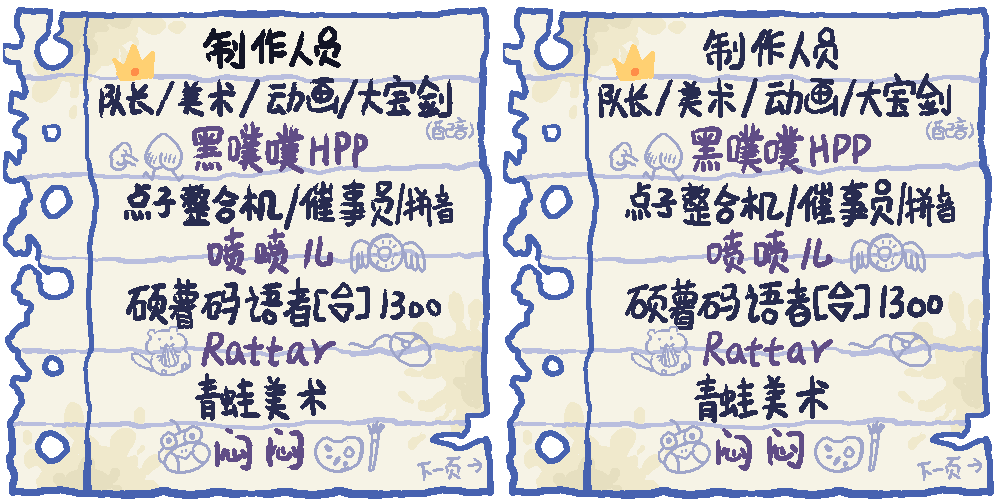 制作人员
队长/美术/动画/大宝剑
(配音)
黑噗噗HPP
点子整合机/催事员/拼音
喷喷儿
硕薯码语者[令]1300
Rattar
青蛙美术
闷闷
下一页→
制作人员
队长/美术/动画/大宝剑
(配音)
黑噗噗HPP
点子整合机/催事员/拼音
喷喷儿
硕薯码语者[令]1300
Rattar
青蛙美术
闷闷
下一页→